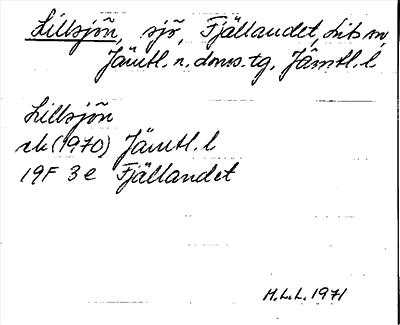 Lillsjön, sjö, Fjällandet, Lits sn,
Jämtl. n. doms. tg, Jämtl. l
Lillsjön
ek (1970) Jämtl. l
19F 3e Fjällandet
H.L.L. 1971